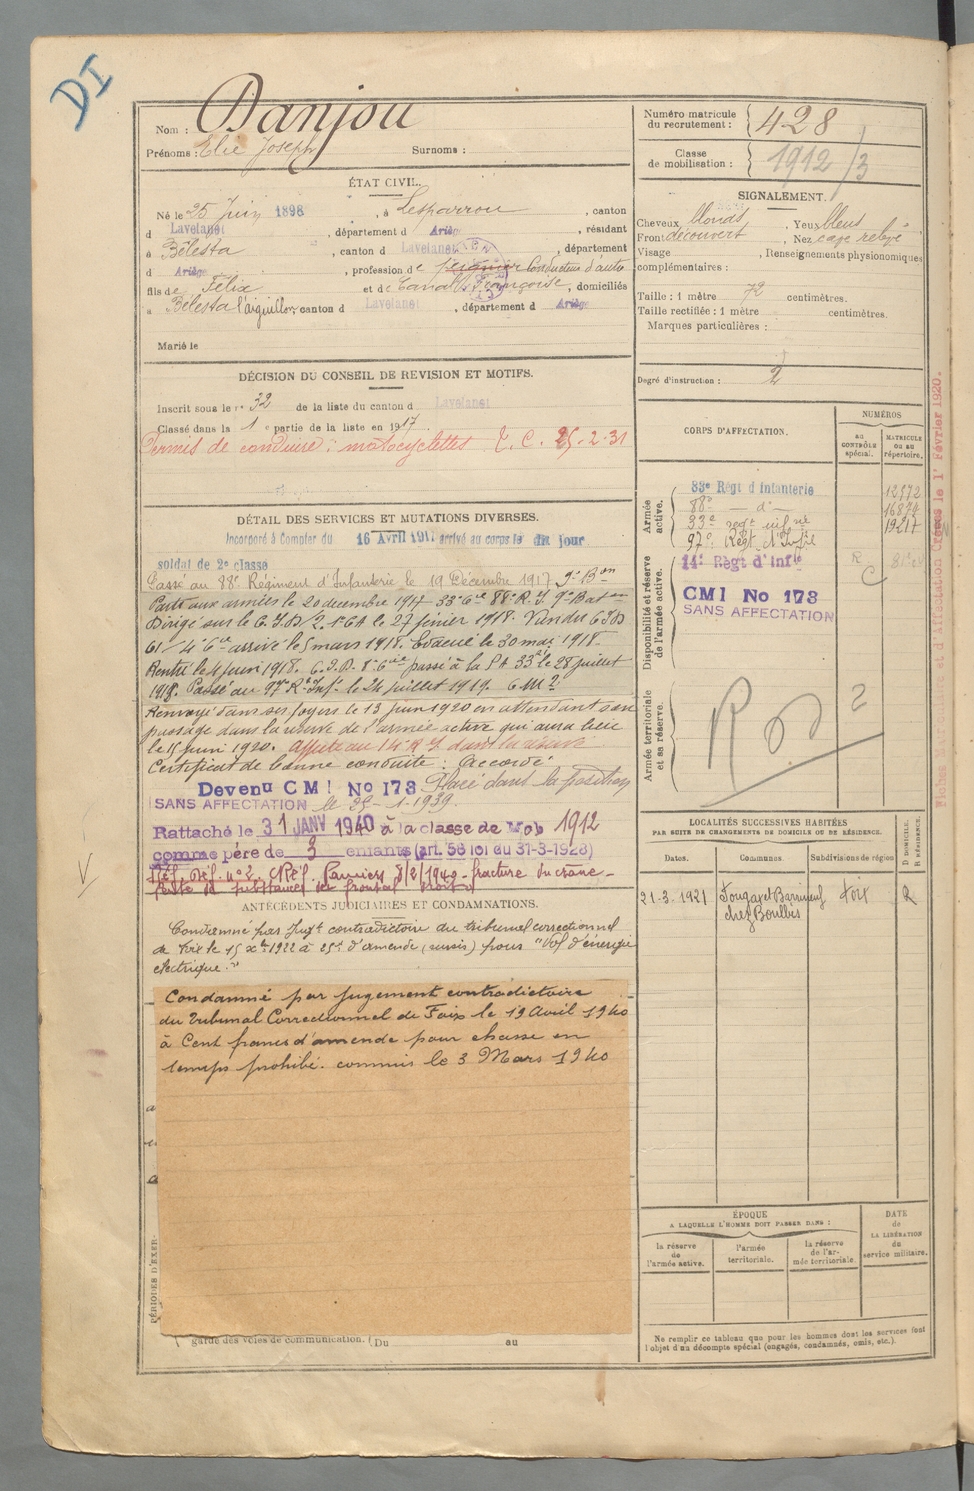 DI
Nom : Danjou
Prénoms : Elie Joseph Surnoms :
Numéro matricule du recrutement : 428
Classe de mobilisation : 1912/3
ÉTAT CIVIL.
Né le 25 Juin 1898, à Lesparrou, canton
d Lavelanet, département d Ariège, résidant
à Bélesta, canton d Lavelanet, département
d Ariège, profession de peigneur Conducteur d'auto
fils de Félix et de Canal Françoise, domiciliés
à Bélesta l'aiguillon, canton d Lavelanet, département d Ariège
Marié le
SIGNALEMENT.
Cheveux blonds, Yeux bleus
Front découvert, Nez cave relevé
Visage , Renseignements physionomiques
complémentaires :
Taille : 1 mètre 72 centimètres.
Taille rectifiée : 1 mètre centimètres.
Marques particulières :
Degré d'instruction : 2
DÉCISION DU CONSEIL DE REVISION ET MOTIFS.
Inscrit sous le n° 32 de la liste du canton d Lavelanet
Classé dans la 1e partie de la liste en 1917.
Permis de conduire : motocyclettes T. C. 25-2-31
DÉTAIL DES SERVICES ET MUTATIONS DIVERSES.
Incorporé à Compter du 16 Avril 1917 arrivé au corps le dit jour
soldat de 2e classe
Passé au 88e Régiment d'Infanterie le 19 Décembre 1917 9e Bon
Parti aux armées le 20 decembre 1917 33e Cie 88e R.I. 9e Baton
Dirigé sur le C.I.D 2. 1er CA le 27 février 1918. Venu du C.I.D
61/4e Cie arrivé le 5 mars 1918. Evacué le 30 mai 1918.
Rentré le 4 juin 1918. C.I.D. 8e Cie passé à la 33e le 28 juillet
1918. Passé au 97e R. Inf. le 24 juillet 1919.
Renvoyé dans ses foyers le 13 juin 1920 en attendant son
passage dans la réserve de l'armée active qui aura lieu
le 15 juin 1920. Affecté au 14e R.I dans la réserve
Certificat de bonne conduite : Accordé
Devenu CMI No 173 Placé dans la position
SANS AFFECTATION le 25-1-1939.
Rattaché le 31 JANV 1940 à la classe de Mob 1912
comme père de 3 enfants (art. 58 loi du 31-3-1928)
Réf. Déf. n° 2. CRéf. Pamiers 8/2/1940 - fracture du crâne -
perte de substance du frontal droit
CORPS D'AFFECTATION.
NUMÉROS
AU CONTRÔLE spécial.
MATRICULE OU AU répertoire.
Armée active.
83e Régt d'Infanterie 12972
88e — d° — 16874
33e regt infrie 19217
97e Régt d'Infie
Disponibilité et réserve de l'armée active.
14e Règt d'Infie R
C
CMI No 173
SANS AFFECTATION
Armée territoriale et sa réserve.
LOCALITÉS SUCCESSIVES HABITÉES
PAR SUITE DE CHANGEMENTS DE DOMICILE OU DE RÉSIDENCE.
Dates. Communes. Subdivisions de région D DOMICILE. R RÉSIDENCE.
21-3-1921 Fougax et Barrineuf Foix R
chez Boulbès
ANTÉCÉDENTS JUDICIAIRES ET CONDAMNATIONS.
Condamné par Jugt contradictoire du tribunal correctionnel
de Foix le 15 Xbre 1922 à 25f d'amende (sursis) pour "Vol d'énergie
électrique."
Condamné par jugement contradictoire
du Tribunal Correctionnel de Foix le 19 Avril 1940
à Cent francs d'amende pour chasse en
temps prohibé. commis le 3 Mars 1940
PÉRIODES D'EXER
garde des voies de communication. ( Du au
ÉPOQUE
A LAQUELLE L'HOMME DOIT PASSER DANS :
la réserve de l'armée active.
l'armée territoriale.
la réserve de l'armée territoriale
DATE de LA LIBÉRATION du service militaire.
Ne remplir ce tableau que pour les hommes dont les services font
l'objet d'un décompte spécial (engagés, condamnés, omis, etc.).